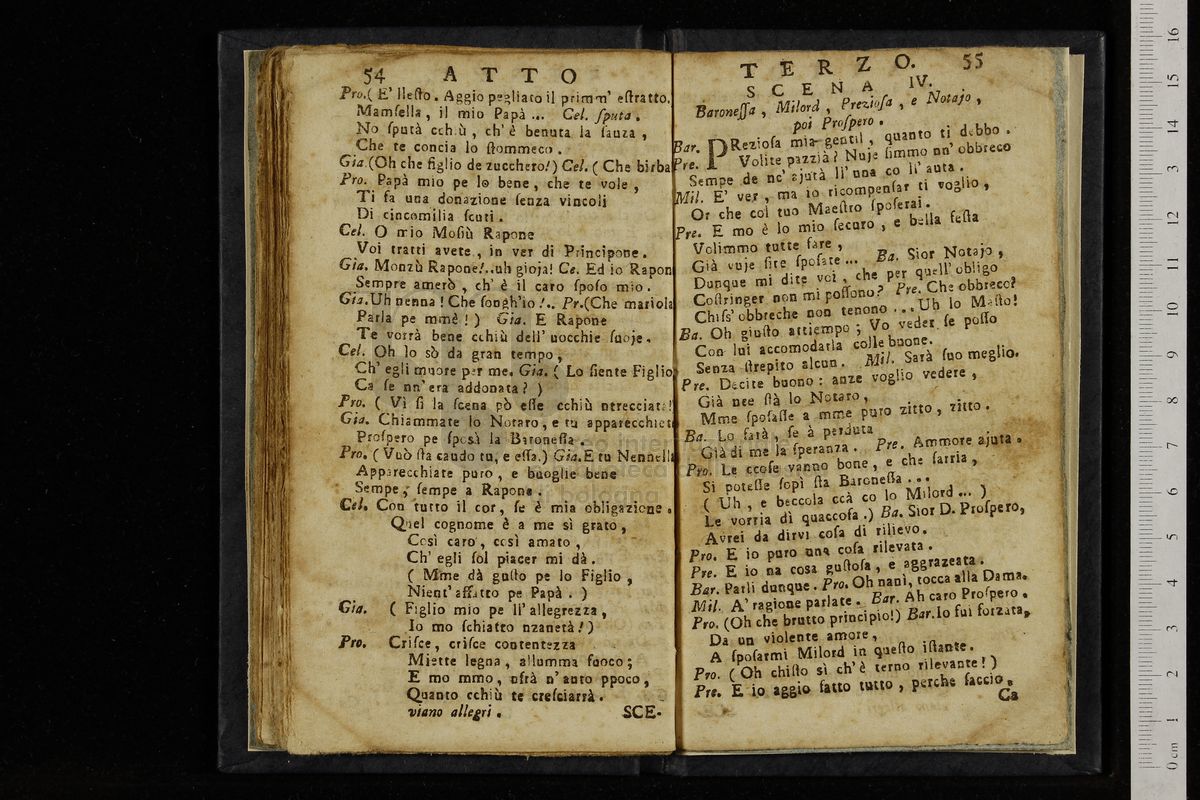 54 ATTO
Pro. ( E' lleſto. Aggio pegliato il primm' eſtratto.
Mamſella, il mio Papà ... Cel. ſputa.
No ſputà cchiù, ch' è benuta la ſauza,
Che te concia lo ſtommeco.
Gia. (Oh che figlio de zucchero!) Cel. ( Che birba
Pro. Papà mio pe lo bene, che te vole,
Ti fa una donazione ſenza vincoli
Di cincomilia ſcuti.
Cel. O mio Moſiù Rapone
Voi tratti avete, in ver di Principone.
Gia. Monzù Rapone!..uh gioja! Ce. Ed io Rapon
Sempre amerò, ch' è il caro ſpoſo mio.
Gia. Uh nenna! Che ſongh'io!.. Pr.(Che mariola
Parla pe mmè! ) Gia. E Rapone
Te vorrà bene cchiù dell' uocchie ſuoje.
Cel. Oh lo sò da gran tempo,
Ch' egli muore per me. Gia. ( Lo ſiente Figlio
Ca ſe nn' era addonata? )
Pro. ( Vì ſi la ſcena pò eſſe cchiù ntrecciata!
Gia. Chiammate lo Notaro, e tu apparecchiet
Proſpero pe ſposà la Baroneſſa.
Pro. ( Vuò ſta caudo tu, e eſſa.) Gia. E tu Nennella
Apparecchiate puro, e buoglie bene
Sempe, ſempe a Rapone.
Cel. Con tutto il cor, ſe è mia obligazione.
Quel cognome è a me sì grato,
Così caro, così amato,
Ch' egli ſol piacer mi dà.
( Mme dà guſto pe lo Figlio,
Nient' affatto pe Papà. )
Gia. ( Figlio mio pe ll' allegrezza,
Io mo ſchiatto nzanetà!)
Pro. Criſce, criſce contentezza
Miette legna, allumma fuoco;
E mo mmo, nfrà n' auto ppoco,
Quanto cchiù te creſciarrà.
viano allegri. SCE-
TERZO. 55
SCENA IV.
Baroneſſa, Milord, Prezioſa, e Notajo,
poi Proſpero.
Bar. PRezioſa mia gentil, quanto ti debbo.
Pre. Volite pazzià? Nuje ſimmo nn' obbreco
Sempe de nc' ajutà ll' una co ll' auta.
Mil. E' ver, ma io ricompenſar ti voglio,
Or che col tuo Maeſtro ſpoſerai.
Pre. E mo è lo mio ſecuro, e bella feſta
Volimmo tutte fare,
Già vuje ſite ſpoſate ... Ba. Sior Notajo,
Dunque mi dite voi, che per quell' obligo
Coſtringer non mi poſſono? Pre. Che obbreco?
Chiſs' obbreche non tenono ... Uh lo Maſto!
Ba. Oh giuſto attiempo; Vo veder ſe poſſo
Con lui accomodarla colle buone.
Senza ſtrepito alcun. Mil. Sarà ſuo meglio.
Pre. Decite buono: anze voglio vedere,
Già nee ſtà lo Notaro,
Mme ſpoſaſſe a mme puro zitto, zitto.
Ba. Lo farà, ſe à perduta
Già di me la ſperanza. Pre. Ammore ajuta.
Pro. Le ccoſe vanno bone, e che ſarria,
Si poteſſe ſopì ſta Baroneſſa ...
( Uh, e beccola ccà co lo Milord ... )
Le vorria dì quaccoſa.) Ba. Sior D. Proſpero,
Avrei da dirvi coſa di rilievo.
Pro. E io puro una coſa rilevata.
Pre. E io na cosa guſtoſa, e aggrazeata.
Bar. Parli dunque. Pro. Oh nanì, tocca alla Dama.
Mil. A' ragione parlate. Bar. Ah caro Proſpero.
Pro. (Oh che brutto principio!) Bar. Io fui forzata,
Da un violente amore,
A ſpoſarmi Milord in queſto iſtante.
Pro. ( Oh chiſto sì ch' è terno rilevante! )
Pre. E io aggio fatto tutto, perche ſaccio,
Ca